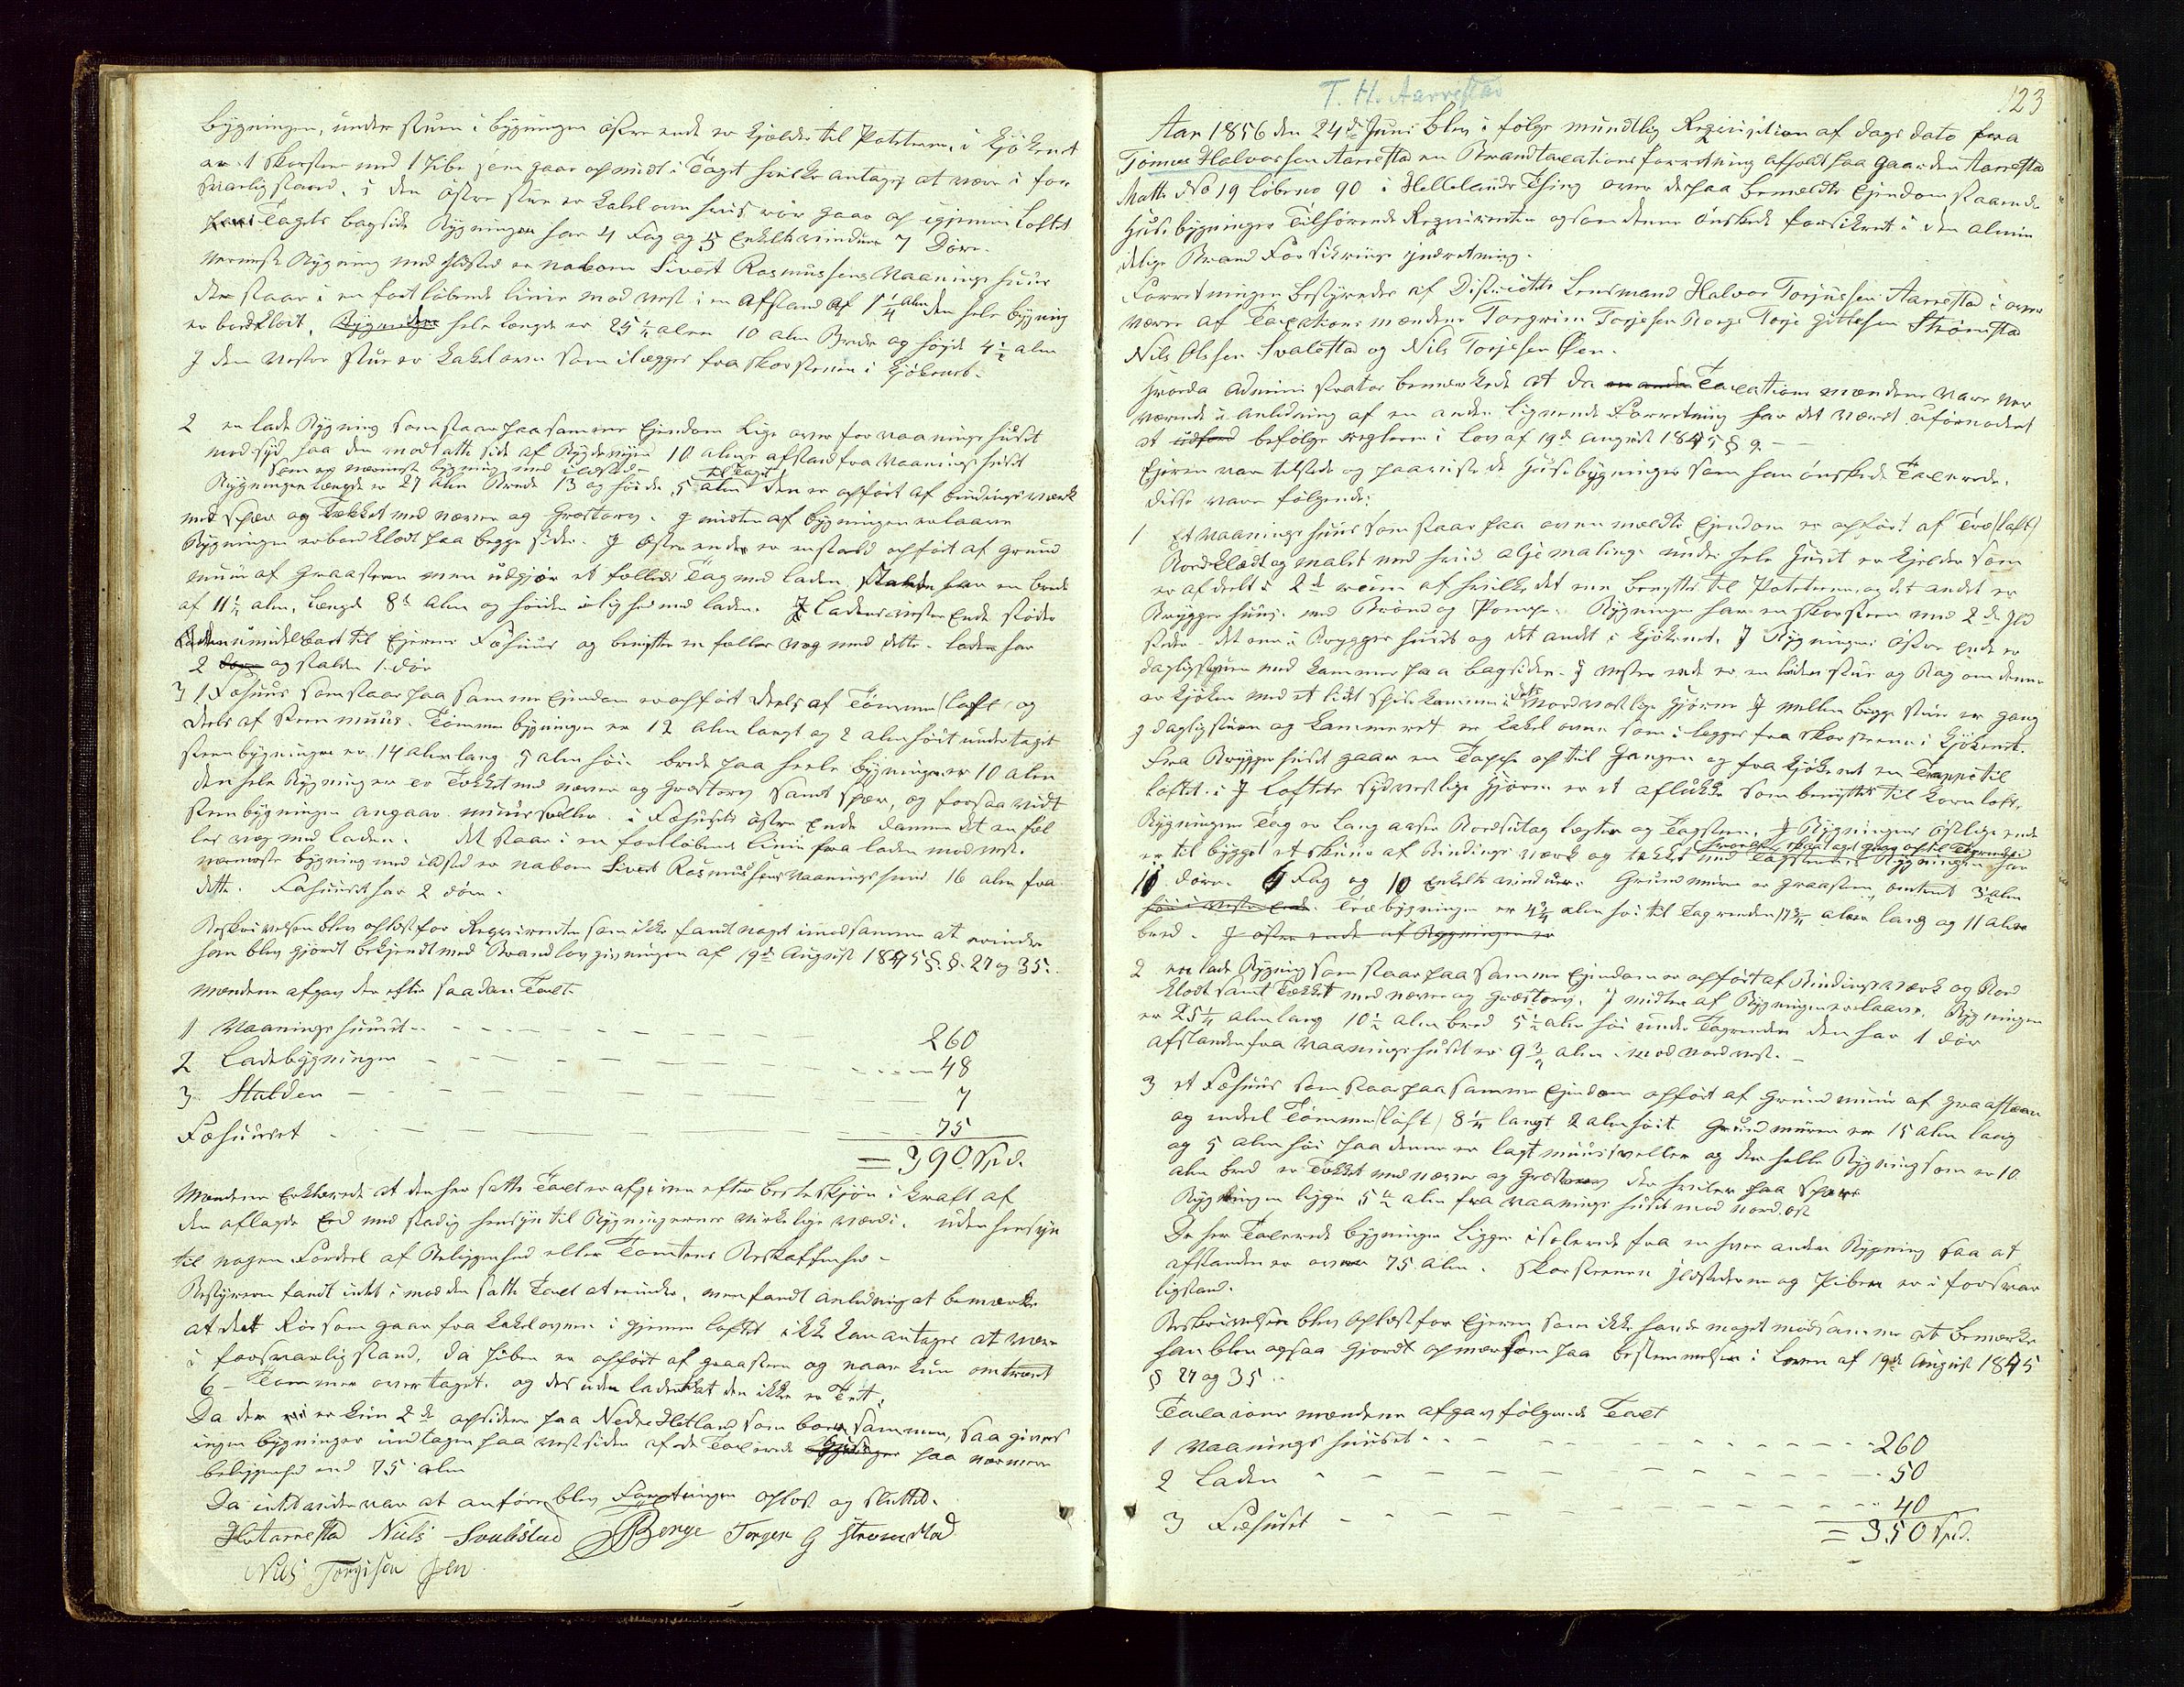 Bygningen, under stuen i bygningen østre ende er kjelder til Poteterne, i Kjøkenet
er 1 skorsteen med 1 Pibe som gaar op midt i Taget hvilke antages at være i for
svarlig stand. i den østre stue er kakelovn hvis rør gaar op igjennem Loftet
Tagets bagside Bygningen har 4 Fag og 5 Enkelte vinduer 7 Døre.
Nærmeste Bygning med ildsted er naboen Sivert Rasmussens Vaaningshuus
der staar i en fortløbende linie mod vest i en afstand af 1 1/4 alen den hele bygning
er bordklædt. Bygningens hele længde er 25 1/4 alen 10 alen Brede og høide 4 1/2 alen
I den Vestre stue er kakelovn som ilægges fra skorstenen i Kjøkenet.
2 en lade Bygning som staar paa samme Ejendom lige over for vaaningshuset
mod syd paa den modsatte side af 10 alens afstand fra Vaaningshuset
som er nærmeste bygning med ildsted
til Taget
Bygningens længde er 27 alen Brede 13 og høide 5 alen den er opført af bindingsværk
med spær og Tækket med næver og Græstorv. I midten af bygningen er laave
Bygningen er bordklædt paa begge sider. I Østre ende er en stald opført af grund
muur af Graasteen men udgjør et fælleds Tag med laden. stalden har en brede
af 11 1/2 alen, længde 8 alen og høiden i lighed med laden. I Ladens vestre Ende støder
laden umidelbart til Ejerens Fæhuus og benytter en fælles væg med dette. laden har
2 døre og stalden 1. dør
3 1 Fæhuus som staar paa samme Ejendom er opført deels af Tømmer (laft) og
deels af steen muur. Tømmer bygningen er 12 alen langt og 2 alen høit under taget
steenbygningen er 14 alen lang, 5 alen høi brede paa heele bygningen er 10 alen
den hele Bygning er Tækket med næver og græstorv samt spær, og forsaavidt
steenbygningen angaar muursveller. i Fæhusets østre Ende danner det en fæl
les væg med laden. det staar i en fortløbende linie fra laden mod vest.
nærmeste bygning med ildsted er naboen Sivert Rasmussens vaaningshuus 16 alen fra
dette. Fæhuuset har 2 døre.
Beskrivelsen blev oplæst for Reqvirenten som ikke fandt noget imod samme at erindre
han blev gjordt bekjendt med Brandlovgivningen af 19de August 1845 §. §. 27 og 35.
Mændene afgav der efter saadan Taxt.
1 Vaaningshuuset - - - - - 260
2 Ladebygningen - - - - - 48
3 Stalden - - - - - 7
Fæhuuset - - - - - 75
= 390 Spd.
Mændene Erklærede at den her satte Taxt er afgiven efter beste skjøn i kraft af
den aflagde Eed med stadig hensyn til Bygningernes virkelige værdi. uden hensyn
til nogen Fordeel af Beliggenhed eller Tomtens Beskaffenhed -
Bestyreren fandt intet imod den satte Taxt at erindre, men fandt anledning at bemærke
at det Rør som gaar fra kakelovnen i gjennem loftet ikke kan antages at være
i forsvarlig stand, da piben er opført af graasteen og naar kun omtrent
6 Tommer over taget. og det uden ladende at den ikke er Tet.
Da der er kun 2de opsidere paa Nedre Hetland som boer sammen, saa gives
ingen bygninger indtagen paa vestsiden af de Taxerede paa nærmere
beliggenhed end 75 alen
Da intet videre var at anføre blev Forretningen oplæst og sluttet.
H Aarrestad Niils Svalestad Berge Torger G Strømstad
Nils Torgisen Øen
T. H. Aarrestad
123
Aar 1856 den 24de Juni blev i følge mundtlig Reqvisition af dags dato fra
Tønnes Halvorsen Aarrestad en Brandtaxations forretning afholdt paa Gaarden Aarrestad
Matr. No 19 løbeno 90 i Hellelands Thing over de paa bemeldte Ejendom staaende
Huusbygninger Tilhørende Reqvirenten og som denne ønskede forsikret i den almin
delige Brand Forsikrings indretning.
Forretningen bestyredes af Districtets Lensmand Halvor Torjussen Aarrestad i over
være af Taxations mændene Torgrim Torjesen Berge Torje Gitlesen Strømstad
Nils Olsen Svalestad og Nils Torjesen Øen.
Hvorda administrator bemærkede at da Taxations mændene vare nær
værende i anledning af en anden lignende Forretning har det været ufornødent
at befølge reglerne i lov af 19de August 1845 § 9. -
Ejeren var tilstede og paaviste de Huusbygninger som han ønskede Taxerede.
disse vare følgende:
1 Et Vaaningshuus som staar paa ovenmeldte Ejendom er opført af Træ (laft)
Bordklædt og malet med hvid oljemaling. under hele Huset er kjelder som
er afdeelt i 2de rum af hvilke det ene benyttes til Poteterne og det andet er
Bryggerhuus. med Brønd og Pompe. Bygningen har en skorsteen med 2de Ild
steder det ene i Bryggerhuset og det andet i kjøkenet. I Bygningens østre Ende er
dagligstuen med kammer paa bagsiden. I vestre ende er en liden stue og Bag om denne
er kjøken med et lidet spiskammer i dets Nordvestlige Hjørne I mellem begge stuer er gang
I dagligstuen og kammeret er kakelovne som i lægges fra skorsteenen i kjøkenet.
Fra Bryggerhuset gaar en Trappe op til Gangen og fra kjøkenet en Trappe til
loftet. I Loftets sydvestlige Hjørne er et aflukke som benyttes til kornloft.
Bygningens Tag er lang aaser Bordsutag lægter og Tagsteen. I Bygningens Østlige ende
er til bygget et skuur af Bindingsværk og tækket med Tagsteen Bygningen har
11 døre. 6 Fag og 10 Enkelte vinduer. Grundmuren er graasteen, omtrent 3 alen
høi i vestre Ende. Træbygningen er 4 3/4 alen høi til Tagrenden 17 3/4 alen lang og 11 alen
bred. I østre ende af Bygningen er
2 en lade Bygning som staar paa samme Ejendom er opført af Bindingsværk og Bord
klædt samt Tækket med næver og Græstorv. I midten af Bygningen er laave. Bygningen
er 25 1/4 alen lang 10 1/2 alen bred 5 1/2 alen høi under Tagrenden den har 1 dør
afstanden fra Vaaningshuset er 9 3/4 alen imod nordvest. -
3 et Fæhuus som staar paa samme Ejendom opført af Grundmuur af graasteen
og endeel Tømmer (laft) 8 1/4 langt 2 alen høit Grundmuren er 15 alen lang
og 5 alen høi paa denne er lagt muursveller og den helle Bygning som er 10
alen bred er Tækket med næver og Græstorv der hviler paa spærr
Bygningen ligger 5 1/2 alen fra Vaaningshuset mod nord ost
De her Taxerede bygninger ligger isolerede fra en hver anden Bygning saa at
afstanden er over 75 alen. Skorsteenen Ildstederne og Piben er i forsvar
lig stand.
Beskrivelsen blev oplæst for Ejeren som ikke havde noget mod samme at bemærke
han blev ogsaa gjordt opmærksom paa bestemmelsen i Loven af 19de August 1845
§ 27 og 35.
Taxations mændene afgav følgende Taxt
1 Vaaningshuuset - - - - - 260
2 Laden - - - - - 50
3 Fæhuset - - - - - 40
= 350 Spd.